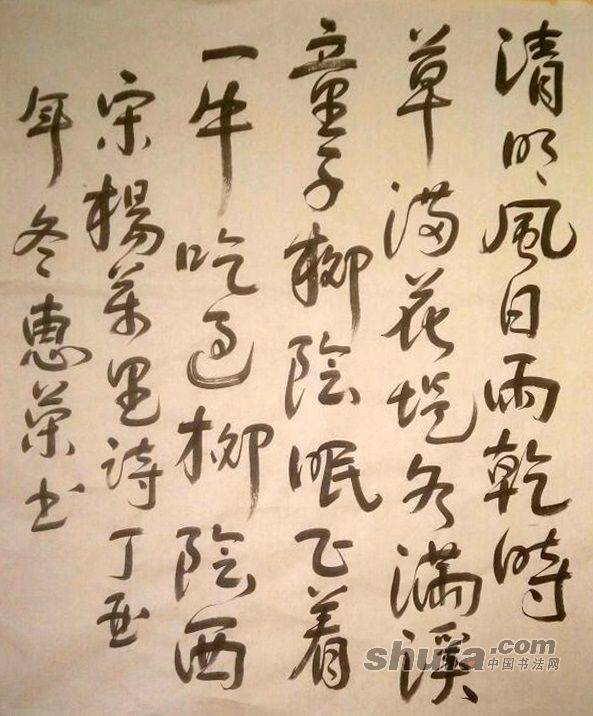 清明風日雨乾時
草满花堤水滿溪
童子柳陰眠正着
一牛吃過柳陰西
宋楊萬里詩丁酉
年冬惠榮书
shufa.com
中国书法网